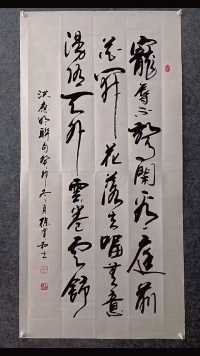 寵辱不驚閑看庭前
花開花落去留無意
漫随天外雲卷雲舒
洪應明聯句癸卯冬月